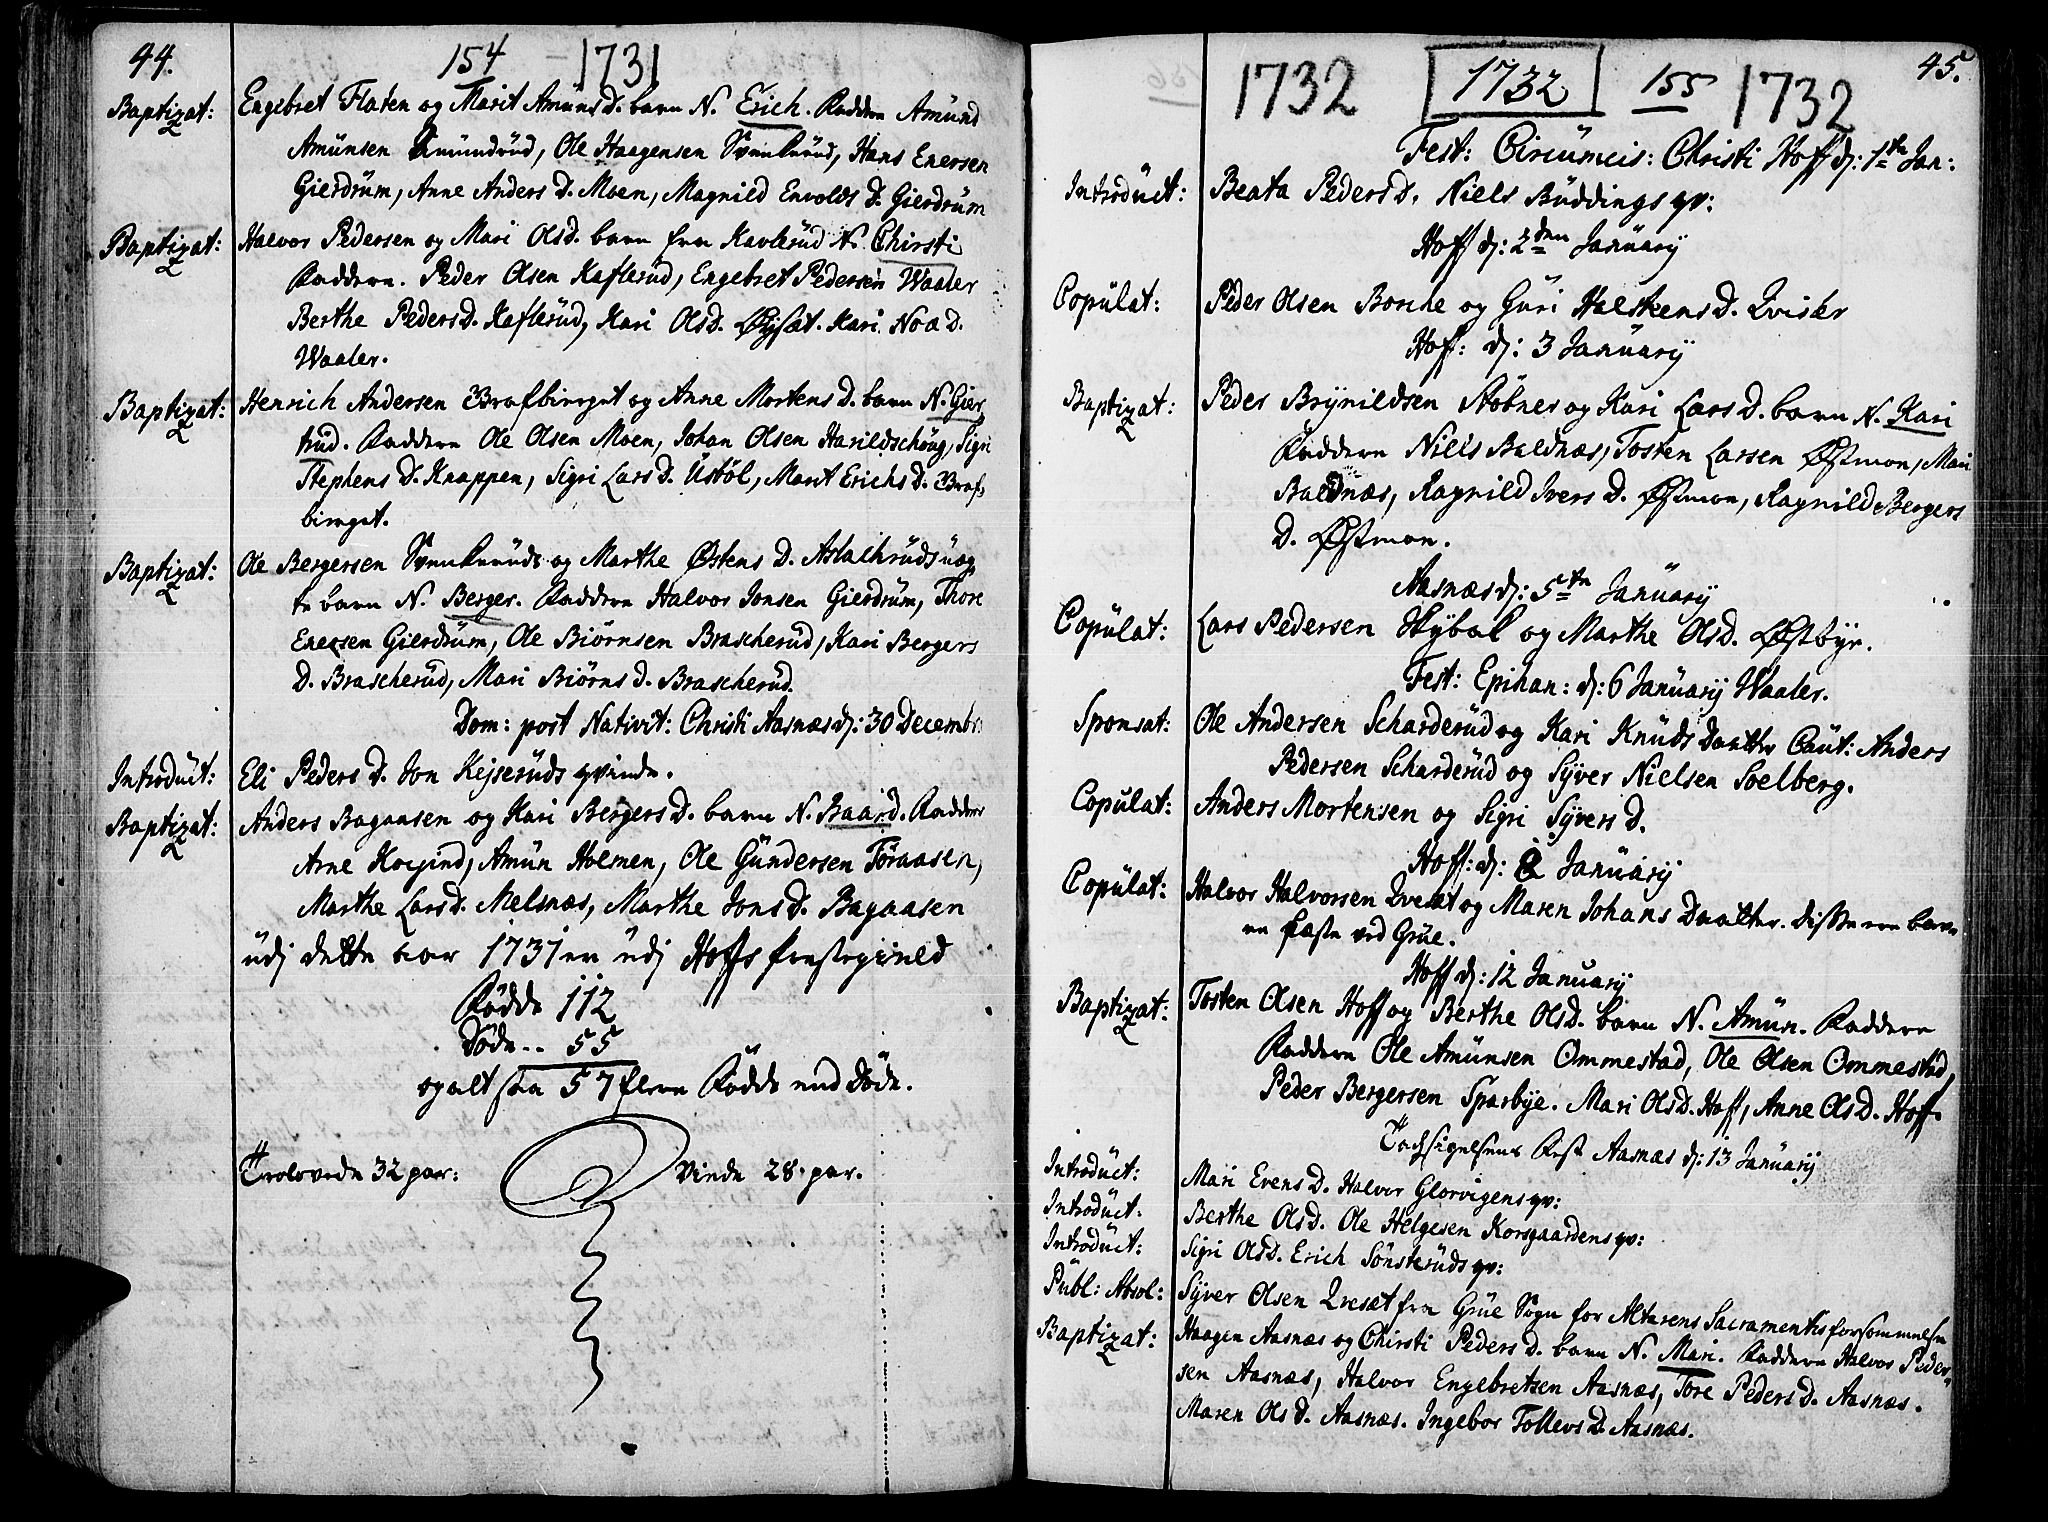 44.
154 1731
Baptizat: Engebret Flaten og Marit Amuns D. barn N. Erich. Faddere Amünd
Amünsen Amundrüd, Ole Haagensen Svenkerüd, Hans Enersen
Gierdrüm, Anne Anders D. Moen, Magnild Envolds D. Gierdrüm
Baptizat: Halvor Pedersen og Mari OlsD. barn fra Kavlerüd N. Chirsti
Faddere. Peder Olsen Kaflerüd, Engebret Pedersen Waaler
Berthe PedersD. Kaflerüd, Kari OlsD. Øysæt. Kari Noæ D.
Waaler.
Baptizat: Henrich Andersen Brafbirget og Anne Mortens D. barn N. Gier
trud. Faddere Ole Olsen Moen, Johan Olsen Harildschoug, Sigri
Stephens D. Knappen, Sigri Lars D. Üsböl, Marit Erichs D. Braf,
birget.
Baptizat: Ole Bergersen Svenkerüds og Marthe Østens D. Aslachrüds üæg,
te barn N. Berger. Faddere Halvor Jonsen Gierdrüm, Thore
Enersen Gierdrüm, Ole Biørnsen Brascherüd, Kari Bergers
D. Brascherüd, Mari Biørns D. Brascherüd.
Dom: post Nativit: Christi Aasnæs d: 30 Decembr:
Introdüct: Eli Peders D. Jon Kejserüds qvinde.
Baptizat: Anders Bagaasen og Kari BergersD. barn N. Baard. Faddere
Arne Amün Holmen, Ole Gündersen Töraasen,
Marthe LarsD. Melsnæs, Marthe JonsD. Bagaasen
üdj dette aar 1731 er üdj Hoffs præstegield
Födde 112
Döde.. 55
ogalt saa 57 flere Födde end Döde.
Trolovede 32 par: Viede 28. par.
45.
1732 1732 155 1732
Fest: Circümcis: Christi Hoff d: 1te Jan:
Introdüct: Beata PedersD. Niels Büddings qv:
Hoff d: 2den Janüarij
Copülat: Peder Olsen Borche og Güri HalstensD. Qvisler
Hoff: d: 3 Janüarij
Baptizat: Peder Brynildsen Stöbner og Kari Lars D. barn N. Kari
Faddere Niels Baldnæs, Tosten Larsen Østmon, Mari
Baldnæs, Ragnild Ivers D. Østmon, Ragnild Bergers
D. Østmon.
Aasnæs d: 5te Janüarij
Copülat: Lars Pedersen Skybak og Marthe OlsD. Østbye.
Fest: Epihan: d: 6 Janüarij Waaler.
Sponsat: Ole Andersen Scharderüd og Kari Knüds Daatter Caüt: Anders
Pedersen Scharderüd og Syver Nielsen Soelberg.
Copülat: Anders Mortensen og Sigri Syvers D.
Hoff: d: Janüarij
Copülat: Halvor Halvorsen Qvesæt og Maren Johans Daatter. disse ere
ved Grüe.
Hoff d: 12 Januarij
Baptizat: Tosten Olsen Hoff og Berthe OlsD. barn N. Amün. Faddere
Faddere Ole Amünsen Ommestad, Ole Olsen Ommestad,
Peder Bergersen Sparbye. Mari OlsD. Hoff, Anne OlsD. Hoff.
Tachsigelsens Fest Aasnæs d: 13 Januarij
Introdüct: Mari EvensD. Halvor Glorvigens qv:
Introdüct. Berthe OlsD. Ole Helgesen Korsgaardens qv:
Introdüct: Sigri OlsD. Erich Sönsterüds qv:
Publ: Absol: Syver Olsen Qvesæt fra Grüe Sogn for Altarens Sacramentis forsommelse
Baptizat: Haagen Aasnæs og Chirsti Peders D. barn N. Mari. Faddere Halvor Peder,
sen Aasnæs, Halvor Engebretsen Aasnæs, Tore PedersD. Aasnæs.
Maren OlsD. Aasnæs. Ingebor TollevsD. Aasnæs.